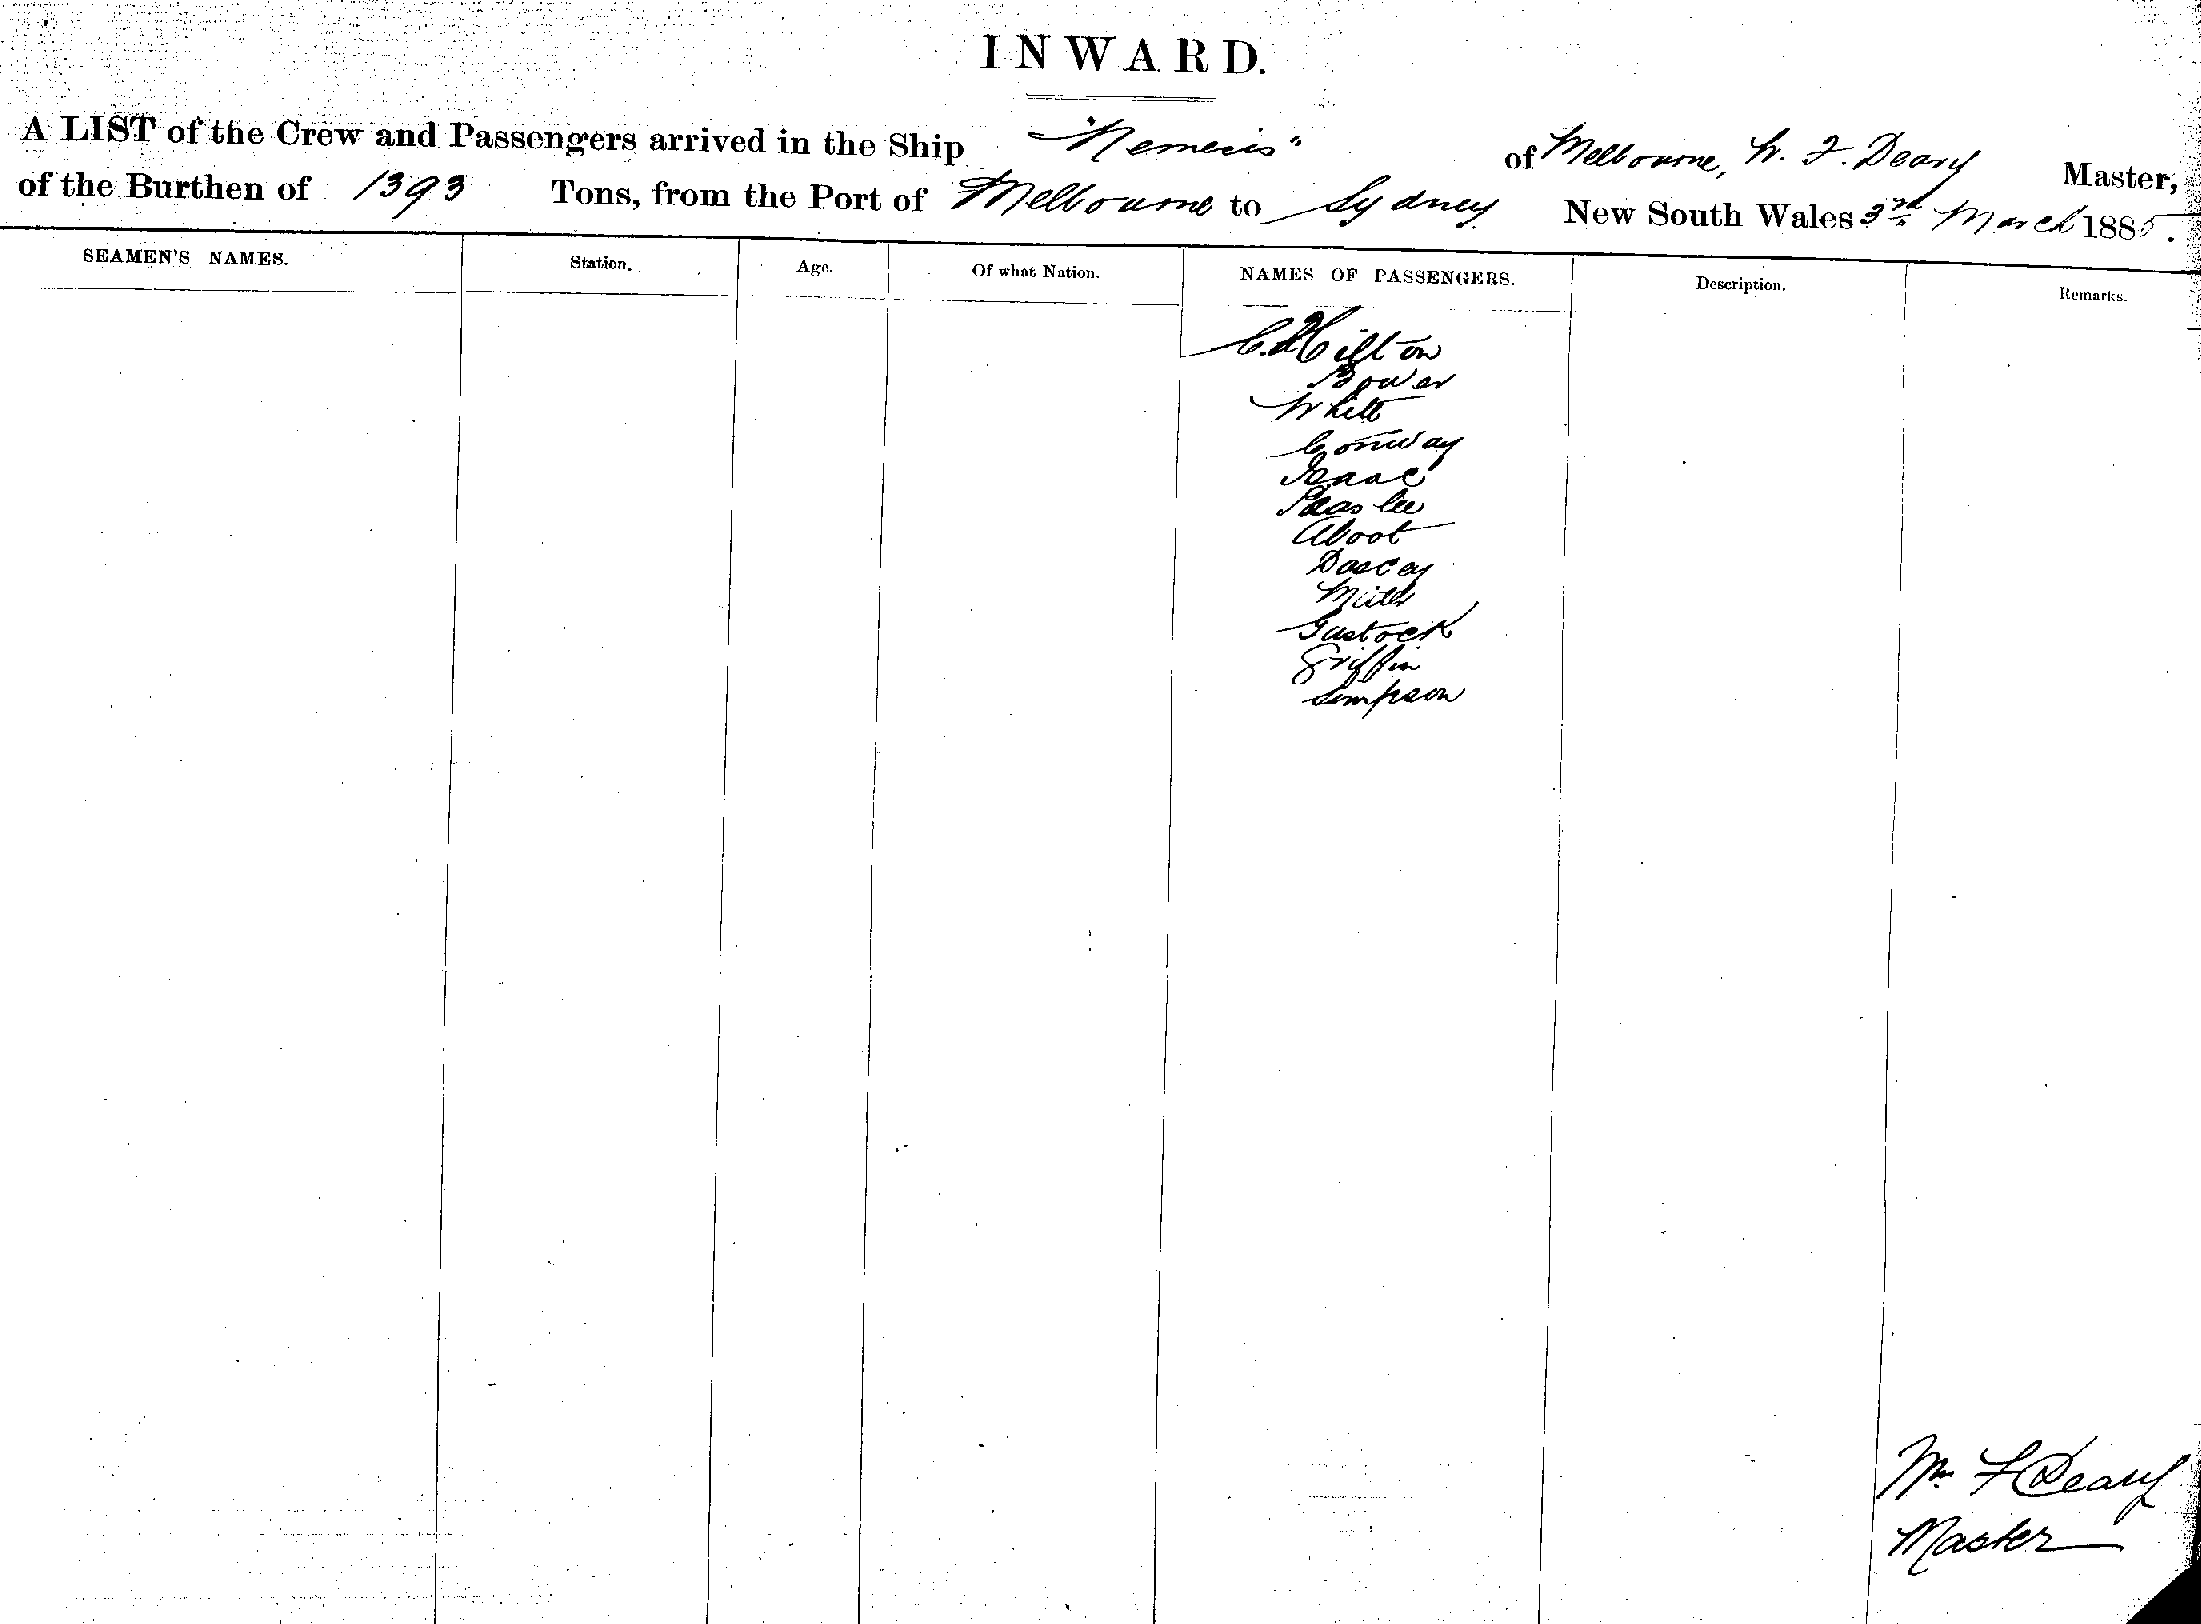 INWARD.
A LIST of the Crew and Passengers arrived in the Ship "Nemesis" of Melbourne, W. F. Deary Master,
of the Burthen of 1393 Tons, from the Port of Melbourne to Sydney New South Wales 3rd March 1885.
SEAMEN'S NAMES. Station. Age. Of what Nation. NAMES OF PASSENGERS. Description. Remarks.
C. Hilton
Bower
White
Conway
Isaac
Peaslee
Aboot
Dascey
Mills
Griffin
Simpson
Wm F Deary
Master